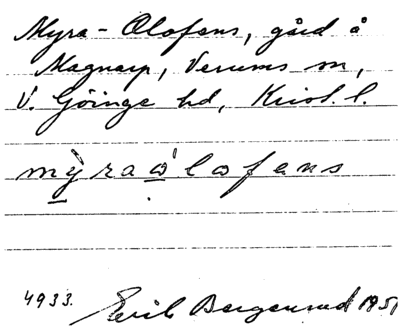 Myra-Olofens, gård å
Magnarp, Verums sn,
V. Göinge hd, Krist. l.
mỳraólofens
4933. Erik Bergenrud 1951